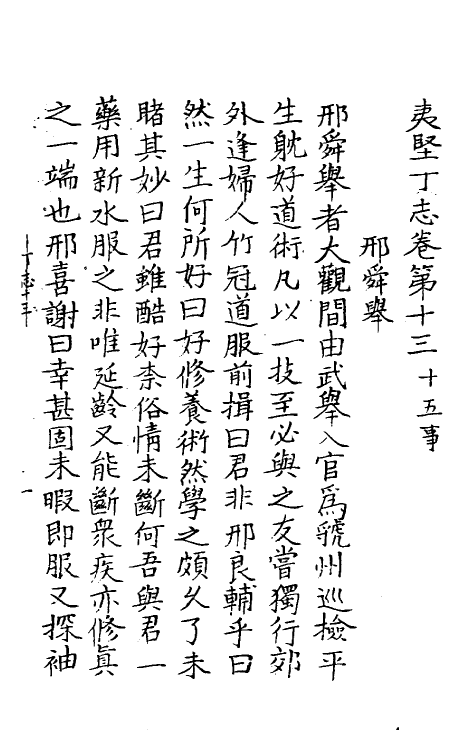 夷堅丁志卷第十三 十五事
邢舜舉
邢舜舉者大觀間由武舉入官爲虢州巡檢平
生躭好道術凡以一技至必與之友嘗獨行郊
外逢婦人竹冠道服前揖曰君非邢良輔乎曰
然一生何所好曰好修養術然學之頗久了未
睹其妙曰君雖酷好柰俗情未斷何吾與君一
藥用新水服之非唯延齡又能斷衆疾亦修眞
之一端也邢喜謝曰幸甚固未暇即服又探袖
一